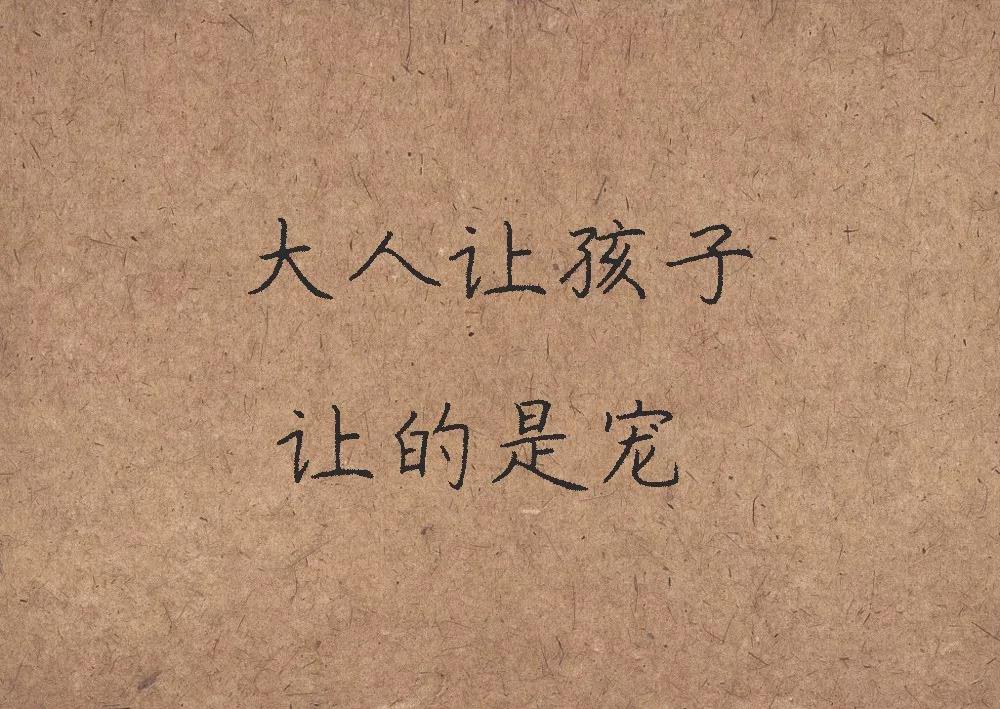 大人让孩子
让的是宠